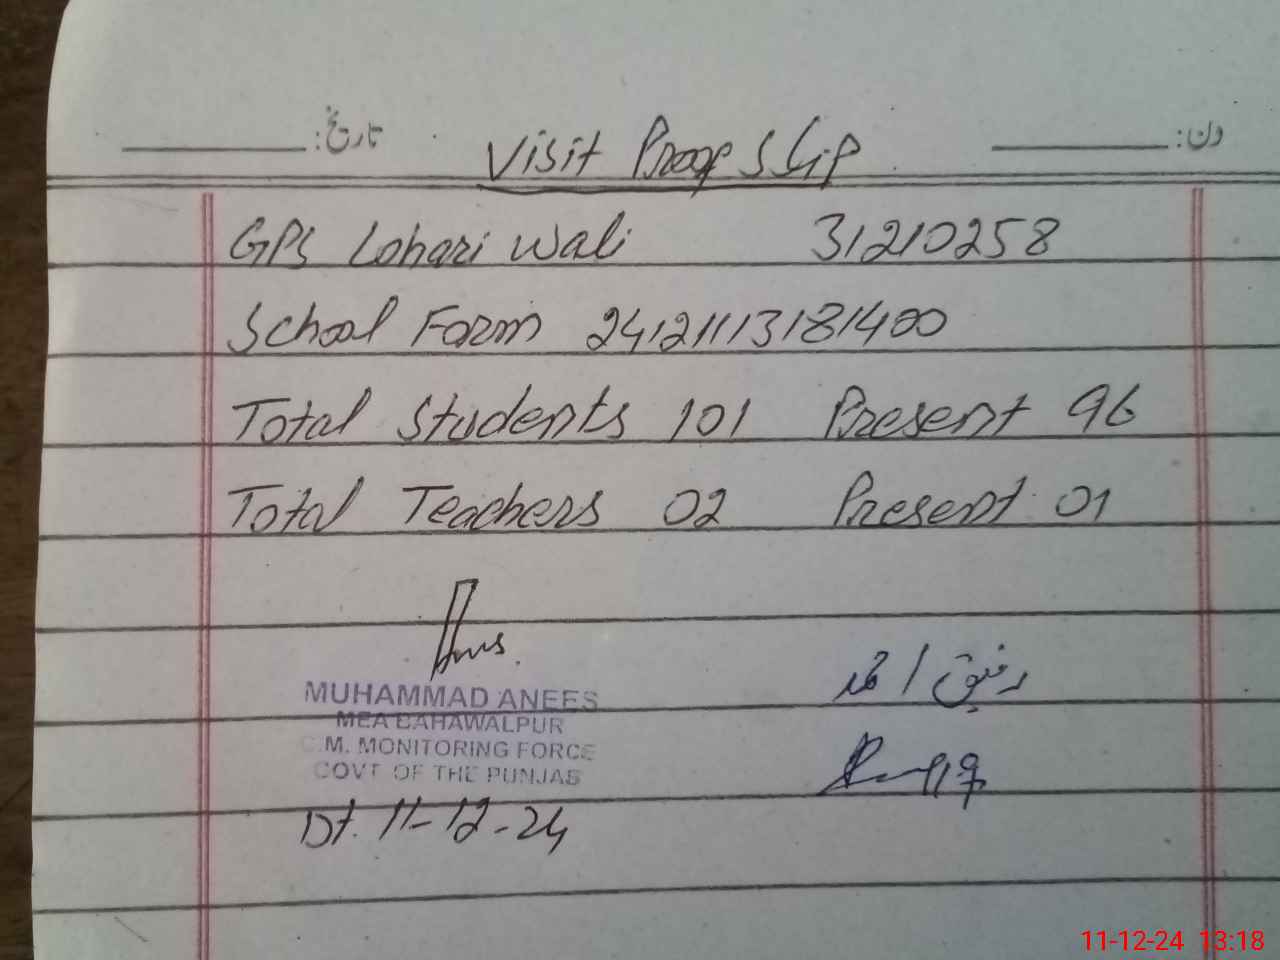 تاریخ: دن:
Visit Proof Slip
GPS Lohari Wali 31210258
School Form 24121113181400
Total Students 101 Present 96
Total Teachers 02 Present 01
رفیق احمد
MUHAMMAD ANEES
MEA BAHAWALPUR
C.M. MONITORING FORCE
GOVT OF THE PUNJAB
Dt. 11-12-24
11-12-24 13:18